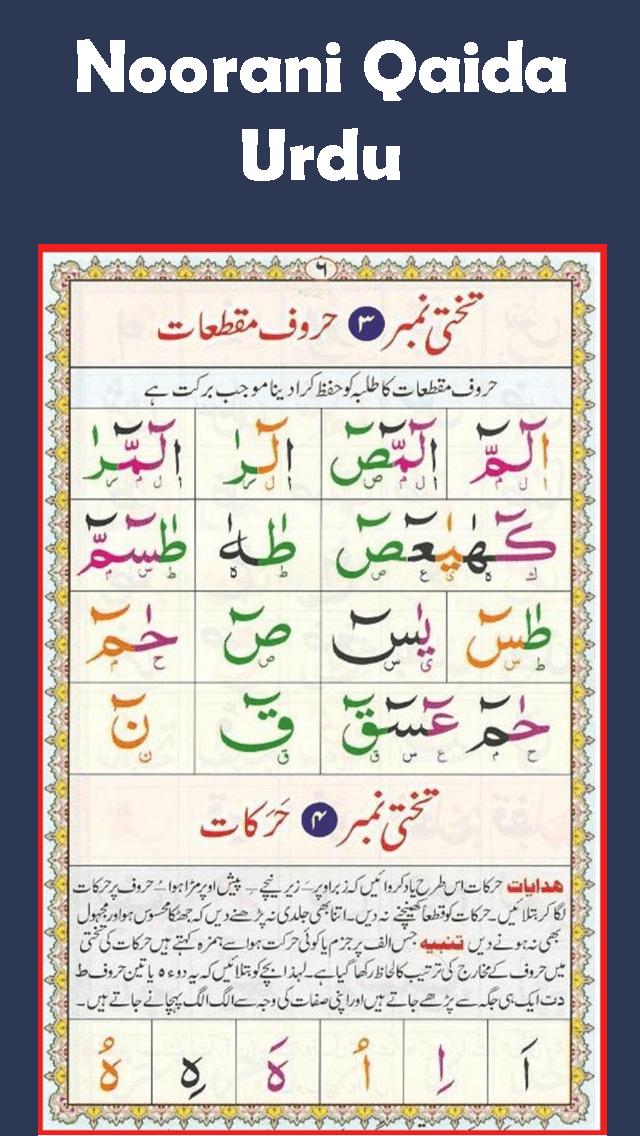 Noorani Qaida
Urdu
٦
تختی نمبر ۳ حروف مقطعات
حروف مقطعات کا طلبہ کو حفظ کرا دینا موجب برکت ہے
الٓمّٓ الٓمّٓصٓ الٓرٰ الٓمّٓرٰ
ا ل م ا ل م ص ا ل ر ا ل م ر
كٓهٰيٰعٓصٓ طٰهٰ طٰسٓمّٓ
ك ه ی ع ص ط ه ط س م
طٰسٓ يٰسٓ صٓ حٰمٓ
ط س ی س ص ح م
حٰمٓ عٓسٓقٓ قٓ نٓ
ح م ع س ق ق ن
تختی نمبر ۴ حَرَکات
ھدایات حرکات اس طرح یاد کروائیں کہ زبر اوپر َ زیر نیچے ِ پیش اوپر مڑا ہوا ُ حروف پر حرکات
لگا کر بتلائیں۔ حرکات کو قطعاً کھینچنے نہ دیں۔ اتنا بھی جلدی نہ پڑھنے دیں کہ جھٹکا محسوس ہو اور مجہول
بھی نہ ہونے دیں تنبیه جس الف پر جزم یا کوئی حرکت ہو اسے ہمزہ کہتے ہیں حرکات کی تختی
میں حروف کے مخارج کی ترتیب کا لحاظ رکھا گیا ہے۔ لہذا بچے کو بتلائیں کہ یہ دو ء ہ یا تین حروف ط
دت ایک ہی جگہ سے پڑھے جاتے ہیں اور اپنی صفات کی وجہ سے الگ الگ پہچانے جاتے ہیں۔
اَ اِ اُ هَ هِ هُ